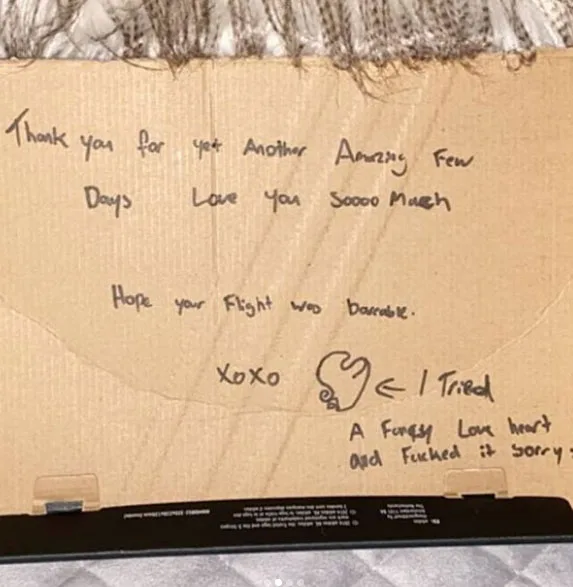 Thank you for yet Another Amazing Few
Days Love you Soooo Much
Hope your Flight was bareable.
XoXo ← I Tried
A Fancy Love heart
and Fucked it Sorry